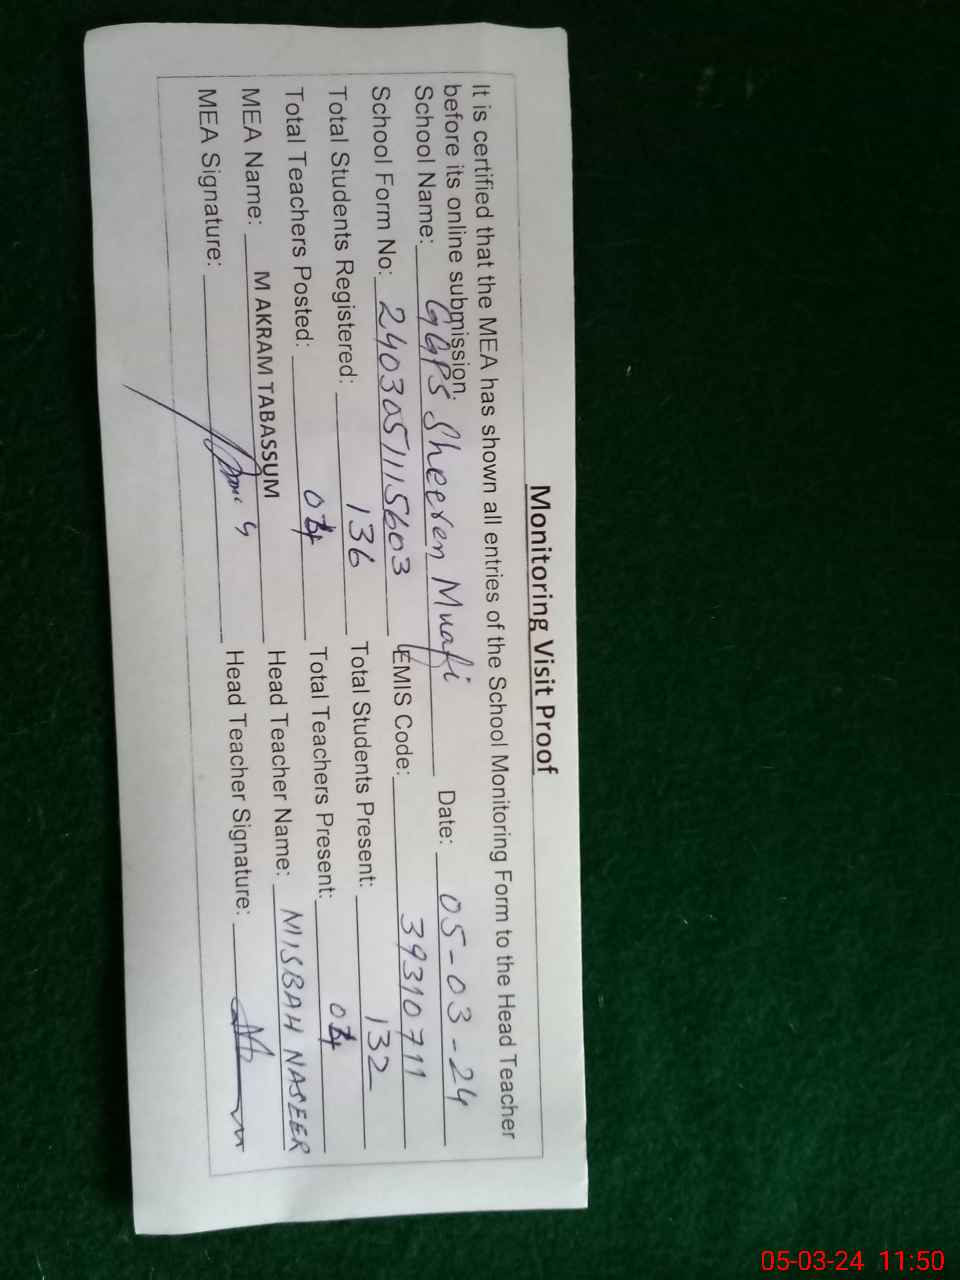 Monitoring Visit Proof
It is certified that the MEA has shown all entries of the School Monitoring Form to the Head Teacher
before its online submission.
School Name: GGPS Sheeren Muafi Date: 05-03-24
School Form No: 2403051115603 EMIS Code: 39310711
Total Students Registered: 136 Total Students Present: 132
Total Teachers Posted: 04 Total Teachers Present: 04
MEA Name: M AKRAM TABASSUM Head Teacher Name: MISBAH NASEER
MEA Signature: Head Teacher Signature:
05-03-24 11:50